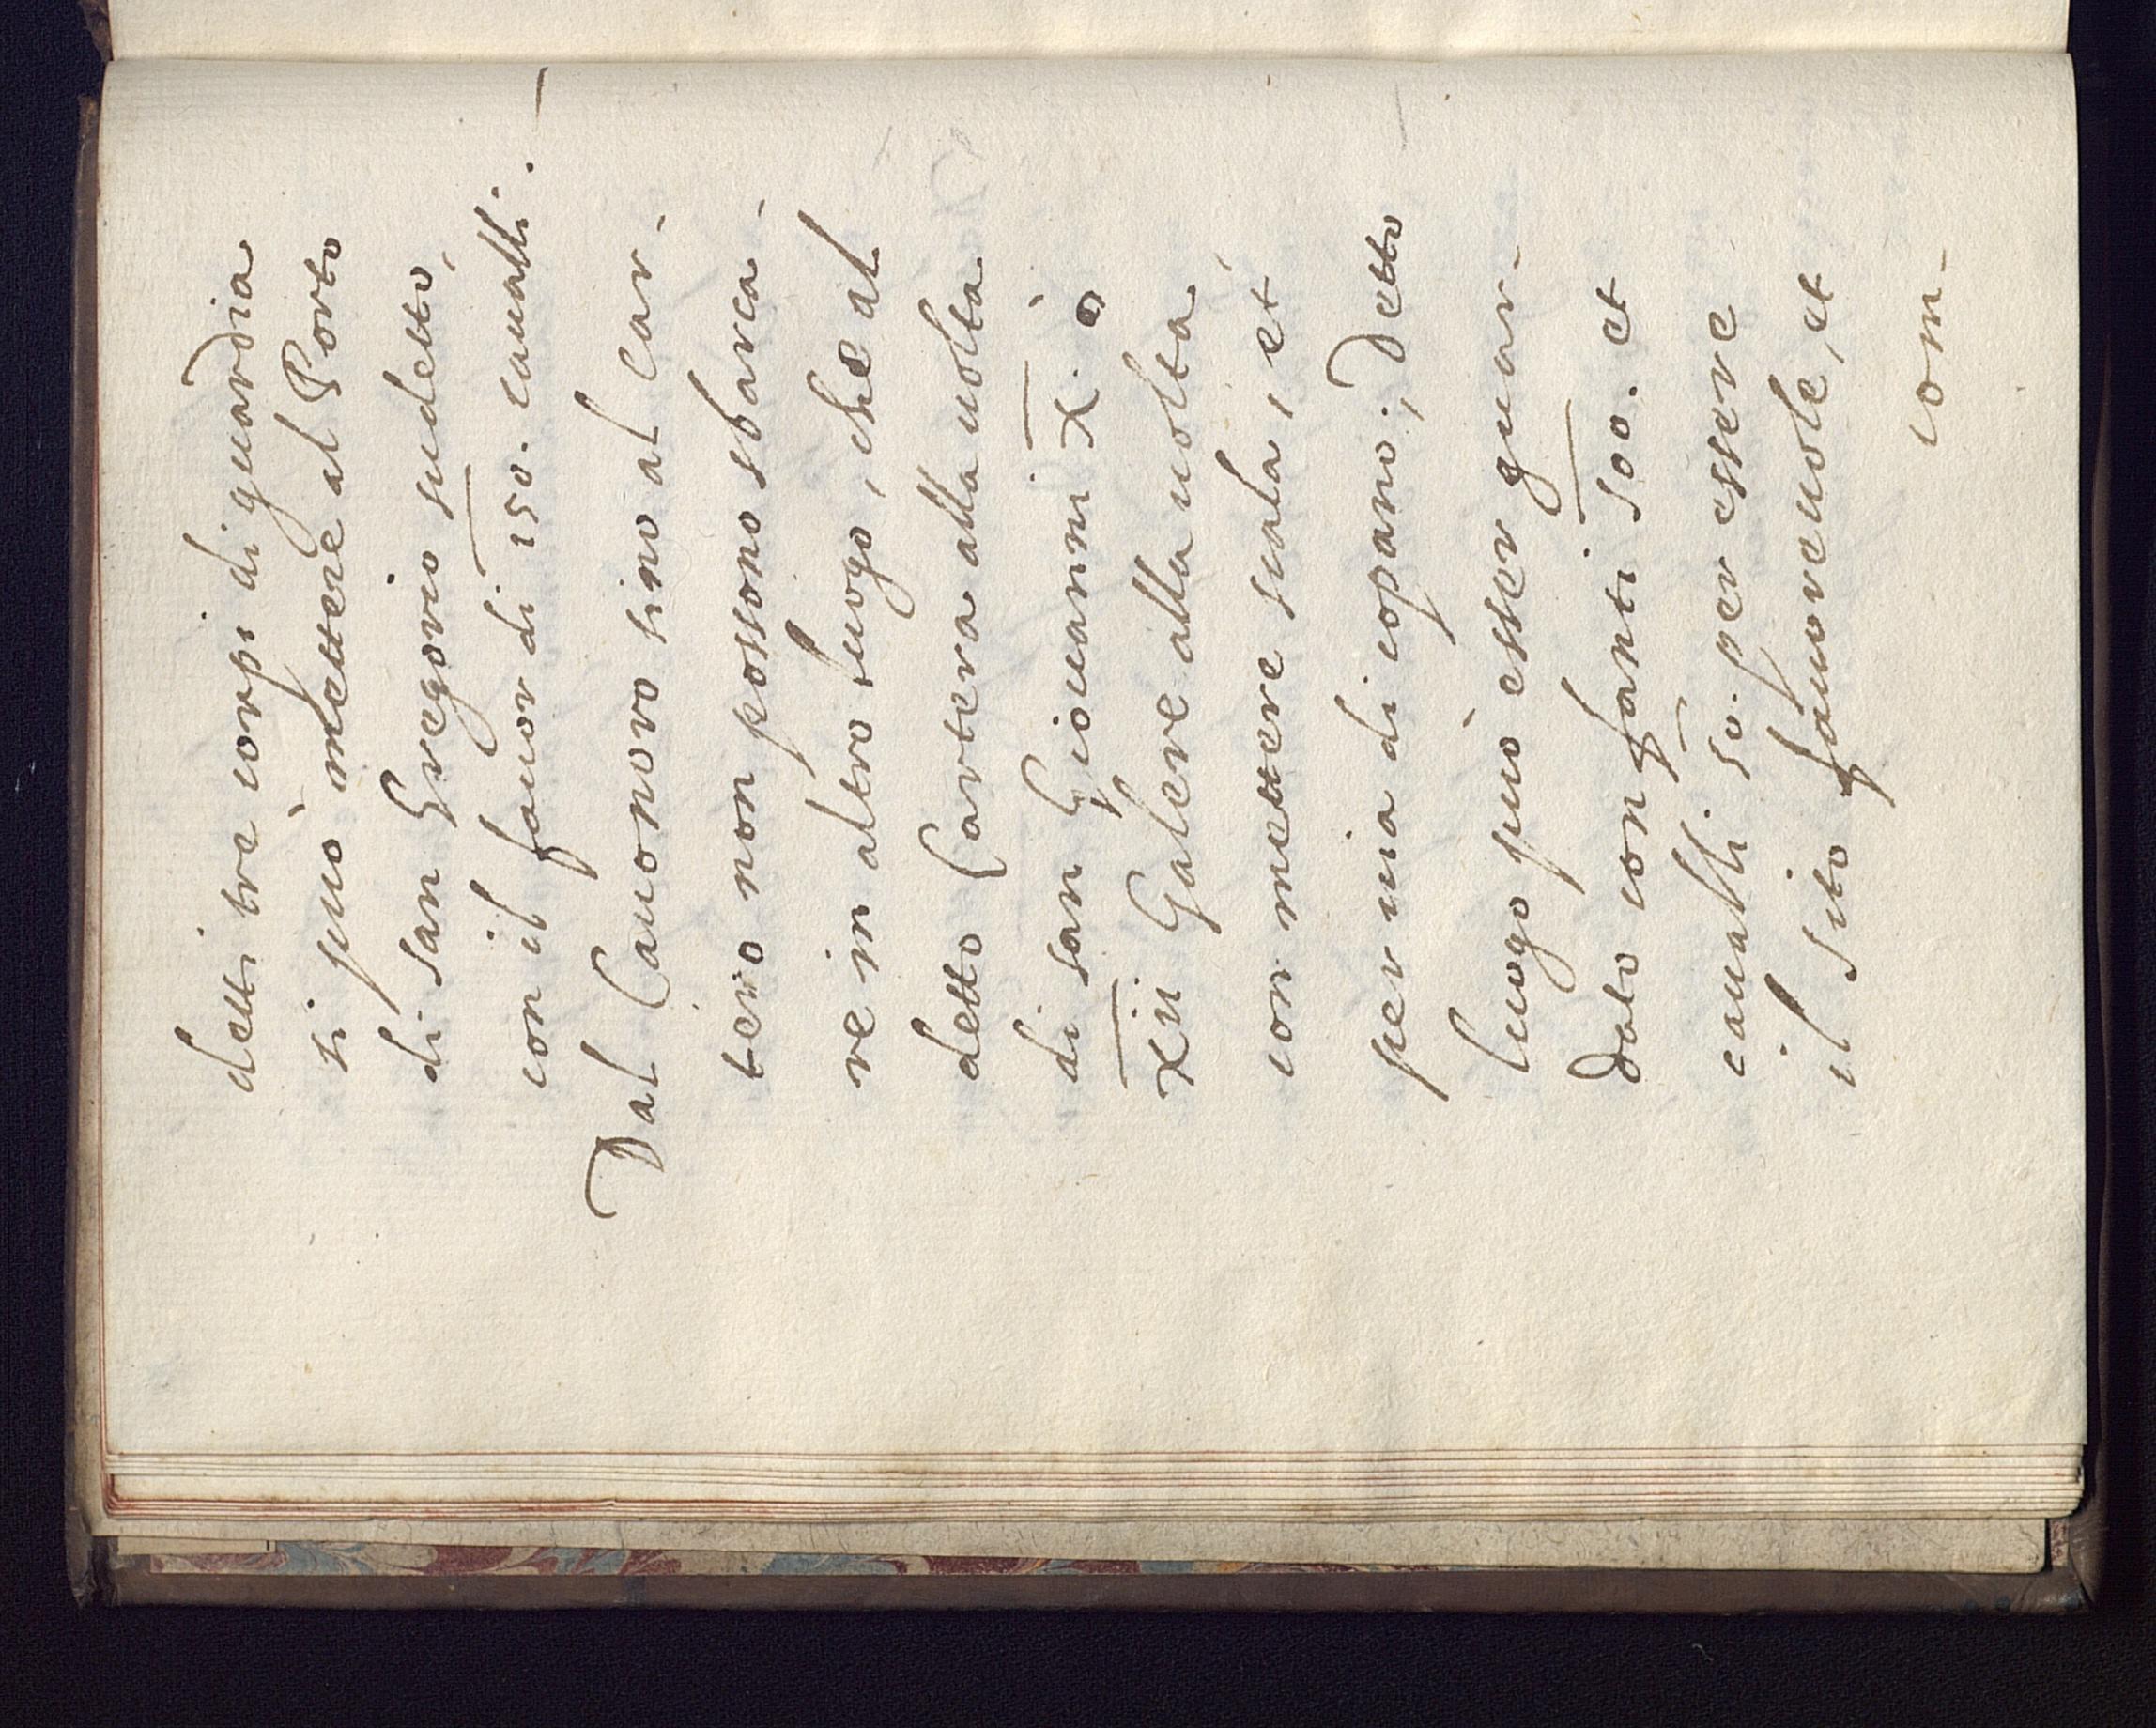 detti tre corpi di guardia
si può mettere al Porto
di san Gregorio sudetto,
con il fauor di 150. caualli. —
Dal Cauonoro sino al Car-
tero non possono sbarca-
re in altro luogo, che al
detto Cartera alla uolta
di san Giouanni X. ò
xij Galere alla uolta,
con mettere scala, et
per uia di copano; Detto
luogo può esser guar-
dato con fanti 500. et
caualli 50. per essere
il sito fauoreuole, et
com-